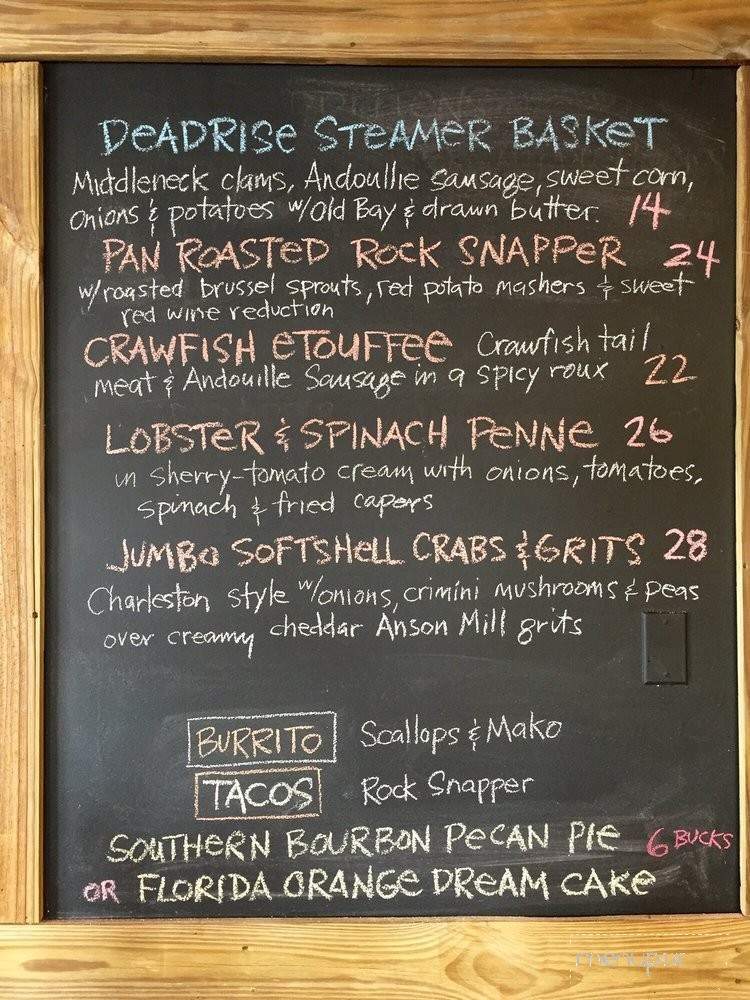 DEADRISE STEAMER BASKET
Middleneck clams, Andoullie sausage, sweet corn,
onions & potatoes w/Old Bay & drawn butter. 14
PAN ROASTED ROCK SNAPPER 24
w/roasted brussel sprouts, red potato mashers & sweet
red wine reduction
CRAWFISH ETOUFFEE Crawfish tail
meat & Andouille Sausage in a spicy roux 22
LOBSTER & SPINACH PENNE 26
in sherry-tomato cream with onions, tomatoes,
spinach & fried capers
JUMBO SOFTSHELL CRABS & GRITS 28
Charleston style w/onions, crimini mushrooms & peas
over creamy cheddar Anson Mill grits
BURRITO Scallops & Mako
TACOS Rock Snapper
SOUTHERN BOURBON PECAN PIE 6 BUCKS
OR FLORIDA ORANGE DREAM CAKE
menupix